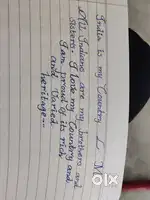 India is my Country
All Indians are my brothers and
Sisters. I love my Country and
I am proud of its rich
and Varied
heritage..
olx